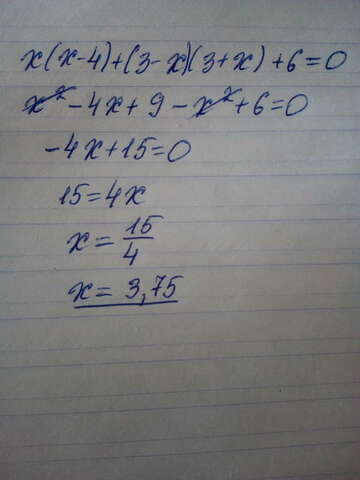 x(x-4)+(3-x)(3+x)+6=0
x²-4x+9-x²+6=0
-4x+15=0
15=4x
x=15/4
x=3,75